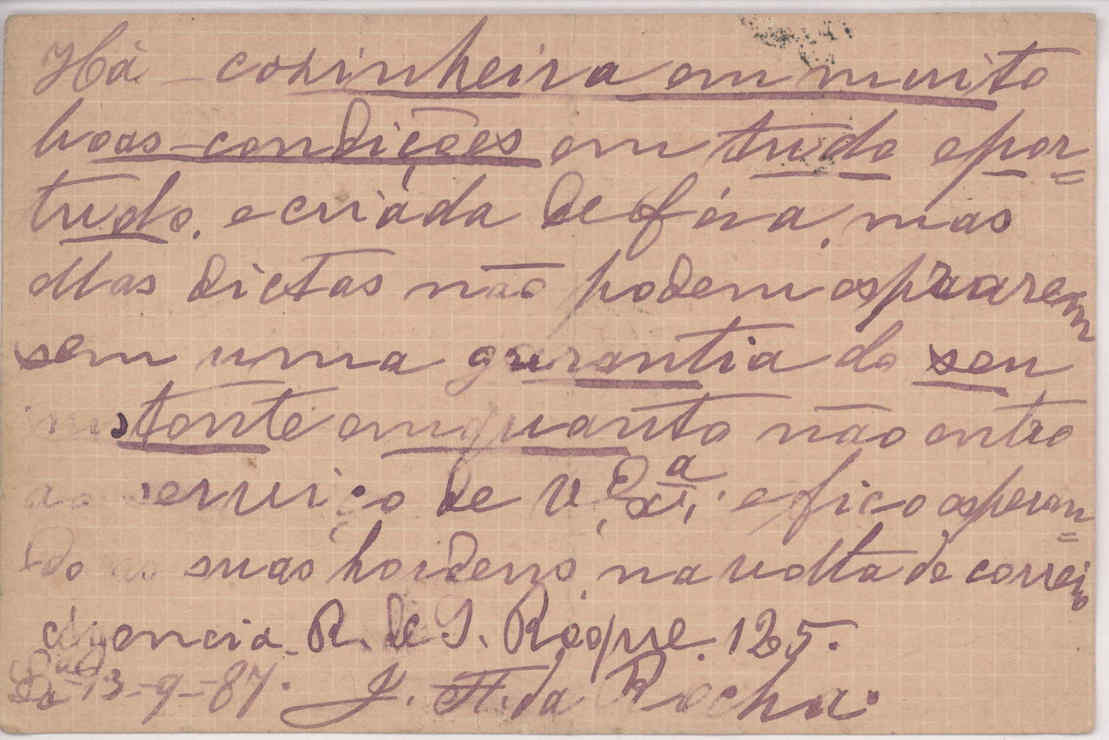 Há - cozinheira em muito
boas condições em tudo e por=
tudo, e criáda de fóra, mas
ellas dictas não podem esperarem
sem uma garantia do seu
tonte emquanto não entro
ao serviço de V. Exª; e fico esperan=
do as suas hordens, na volta do correio
Agencia R. de S. Roque. 125.
13-9-87. J. F. da Rocha.